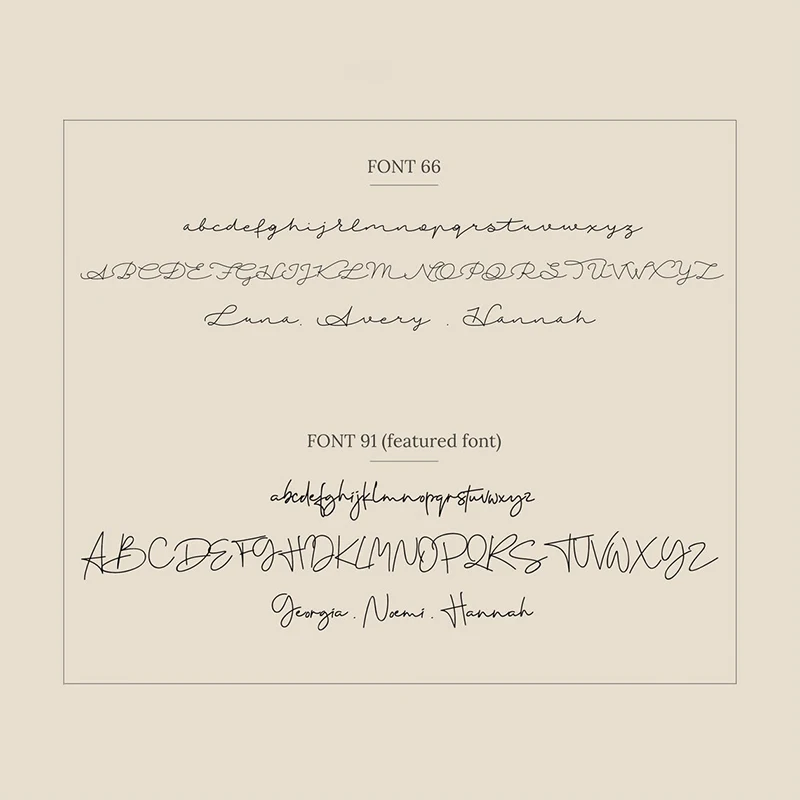 FONT 66
abcdefghijklmnopqrstuvwxyz
ABCDEFGHIJKLMNOPQRSTUVWXYZ
Luna. Avery . Hannah
FONT 91 (featured font)
abcdefghijklmnopqrstuvwxyz
ABCDEFGHIJKLMNOPQRSTUVWXYZ
Georgia . Noemi . Hannah